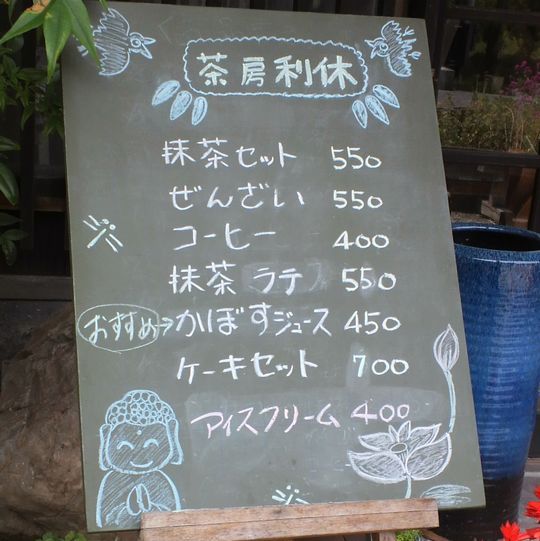 茶房利休
抹茶セット 550
ぜんざい 550
コーヒー 400
抹茶 ラテ 550
おすすめ→かぼすジュース 450
ケーキセット 700
アイスクリーム 400